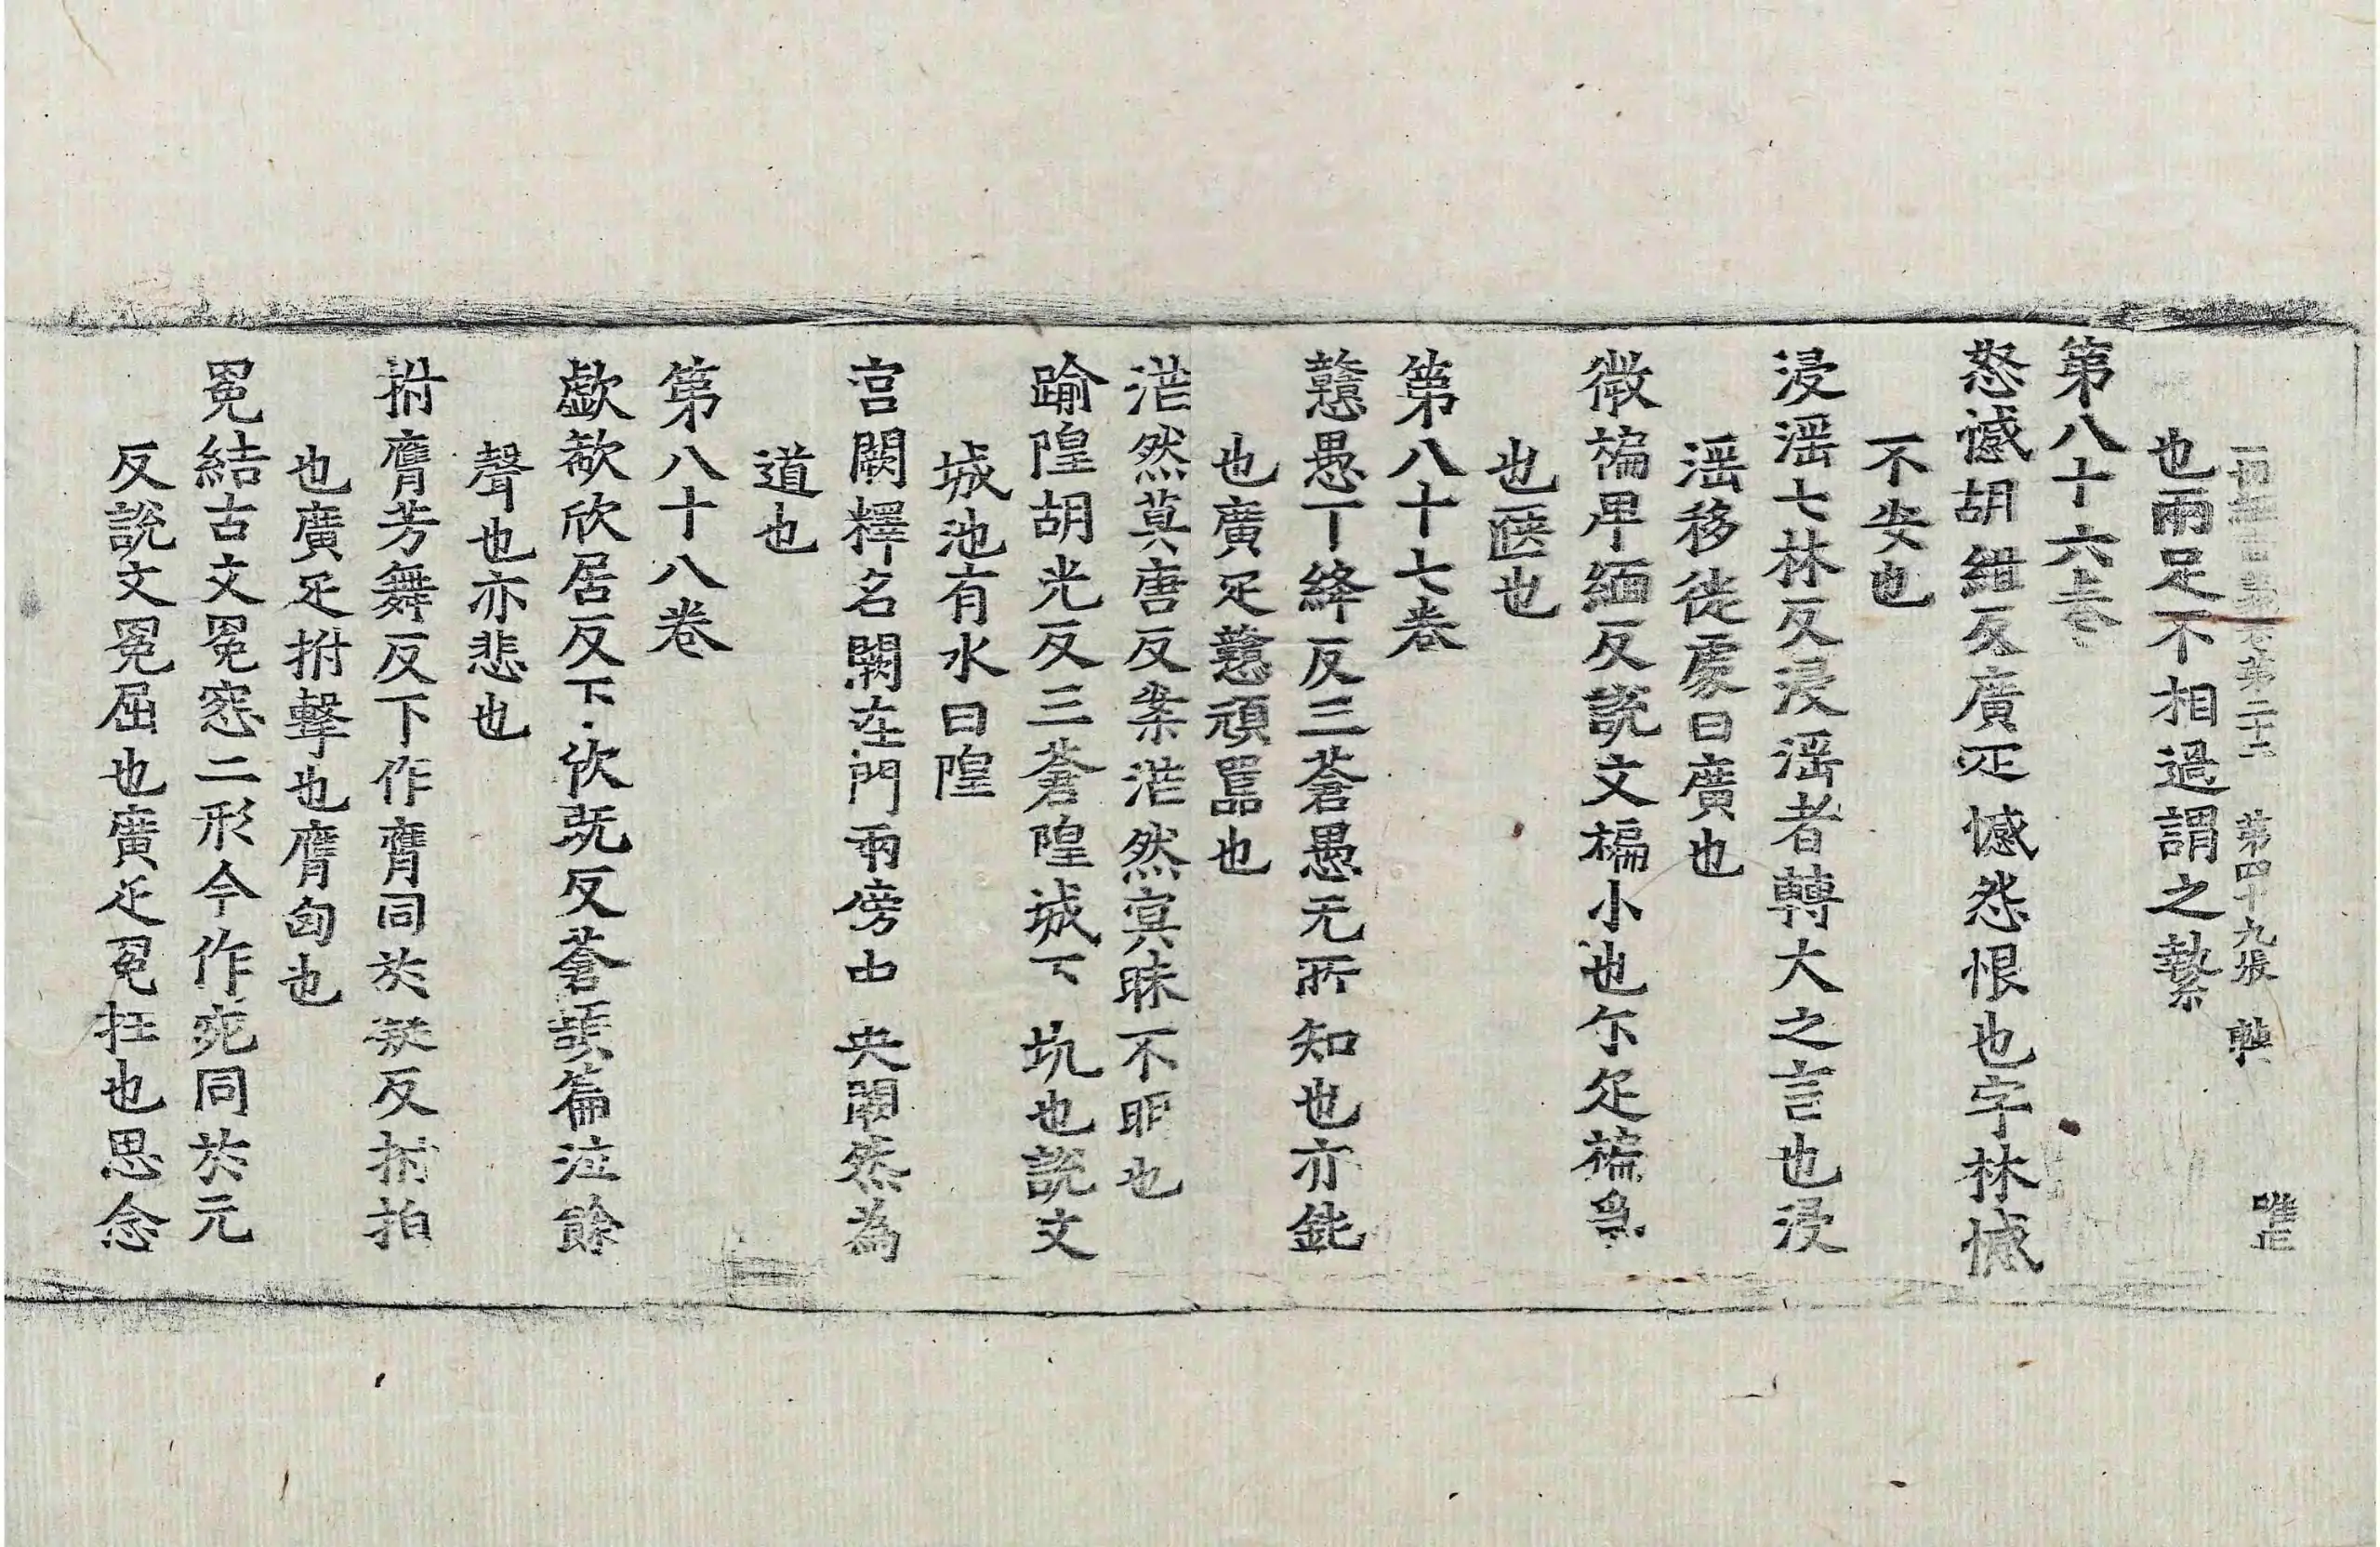 一切經音義卷第二十二 第四十九張
也兩足不相過謂之縶
第八十六卷
怒憾胡紺反廣疋憾怨恨也字林憾
不安也
浸淫七林反浸淫者轉大之言也浸
淫移徙處曰廣也
微褊卑緬反說文褊小也尒疋褊急
也陿也
第八十七卷
戇愚丁絳反三蒼愚无所知也亦鈍
也廣疋戇頑嚚也
茫然莫唐反案茫然冥昧不明也
踰隍胡光反三蒼隍城下坑也說文
城池有水曰隍
宮闕釋名闕在門兩傍中央闕然為
道也
第八十八卷
歔欷欣居反下欣既反蒼頡篇泣餘
聲也亦悲也
拊膺芳舞反下作膺同於凝反拊拍
也廣疋拊擊也膺匈也
冤結古文冤窓二形今作宛同於元
反說文冤屈也廣疋冤抂也思念